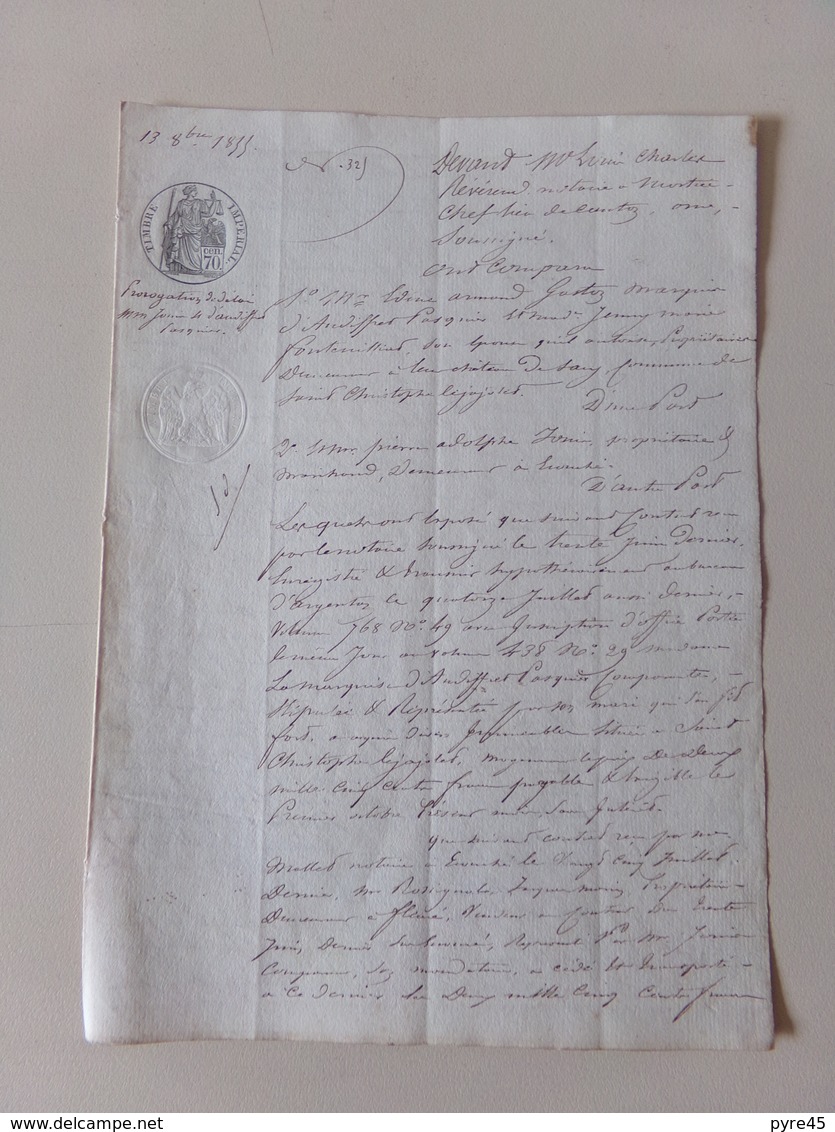 13 8bre 1855
N° 325
TIMBRE IMPERIAL
CEN. 70.
Prorogation de délai
MM Jouin & d'audiffret
Pasquier
Devant Me Louis Charles
Révérend notaire à Mortrée
Chef lieu de canton, orne,
Soussigné.
Ont Comparu
1° Mr Edme armand Gaston Marquis
d'Audiffret Pasquier et made Jenny marie
Fontenilliat, son épouse qu'il autorise, Propriétaires
Demeurant à leur château de Sacy Commune de
Saint Christophe lejajolet.
D'une Part
2° Mr pierre adolphe Jouin, propriétaire &
Marchand, Demeurant à Ecouché.
D'autre Part
Lesquels ont Exposé que suivant Contrat reçu
par le notaire soussigné le trente Juin Dernier,
Enregistré & transcrit hypothécairement au bureau
d'Argentan le quatorze Juillet aussi dernier,
Volume 768 N° 49 avec Inscription d'office Portée
le même Jour au volume 438 N° 29 madame
La Marquise d'Audiffret Pasquier Comparante,
Stipulée & Représentée par son mari qui s'en fit
fort, a acquis divers Immeubles situés à Saint
Christophe lejajolet, moyennant le prix De Deux
mille cinq cents francs payable & Exigible le
Premier octobre Présent mois, sans Intérêt.
Que suivant contrat reçu par me
Mallet notaire à Ecouché le Vingt Cinq Juillet
Dernier, Mr Propriétaire
Demeurant à fleuré, Vendeur au contrat Du trente
Juin Dernier Susénoncé, Représenté Par Mr Jouin
Comparant, son mandataire, a cédé et Transporté
à ce dernier les Deux mille Cinq Cents francs
delcampe.net
pyre45